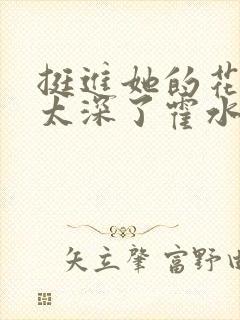 挺进她的花
太深了霍水
矢立肇 富野由